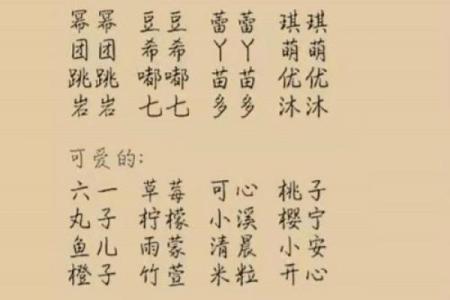 幂幂 豆豆 蕾蕾 琪琪
团团 希希 丫丫 萌萌
跳跳 嘟嘟 苗苗 优优
岩岩 七七 多多 沐沐
可爱的:
六一 草莓 可心 桃子
丸子 柠檬 小溪 樱宁
鱼儿 雨蒙 清晨 小安
橙子 竹萱 米粒 开心